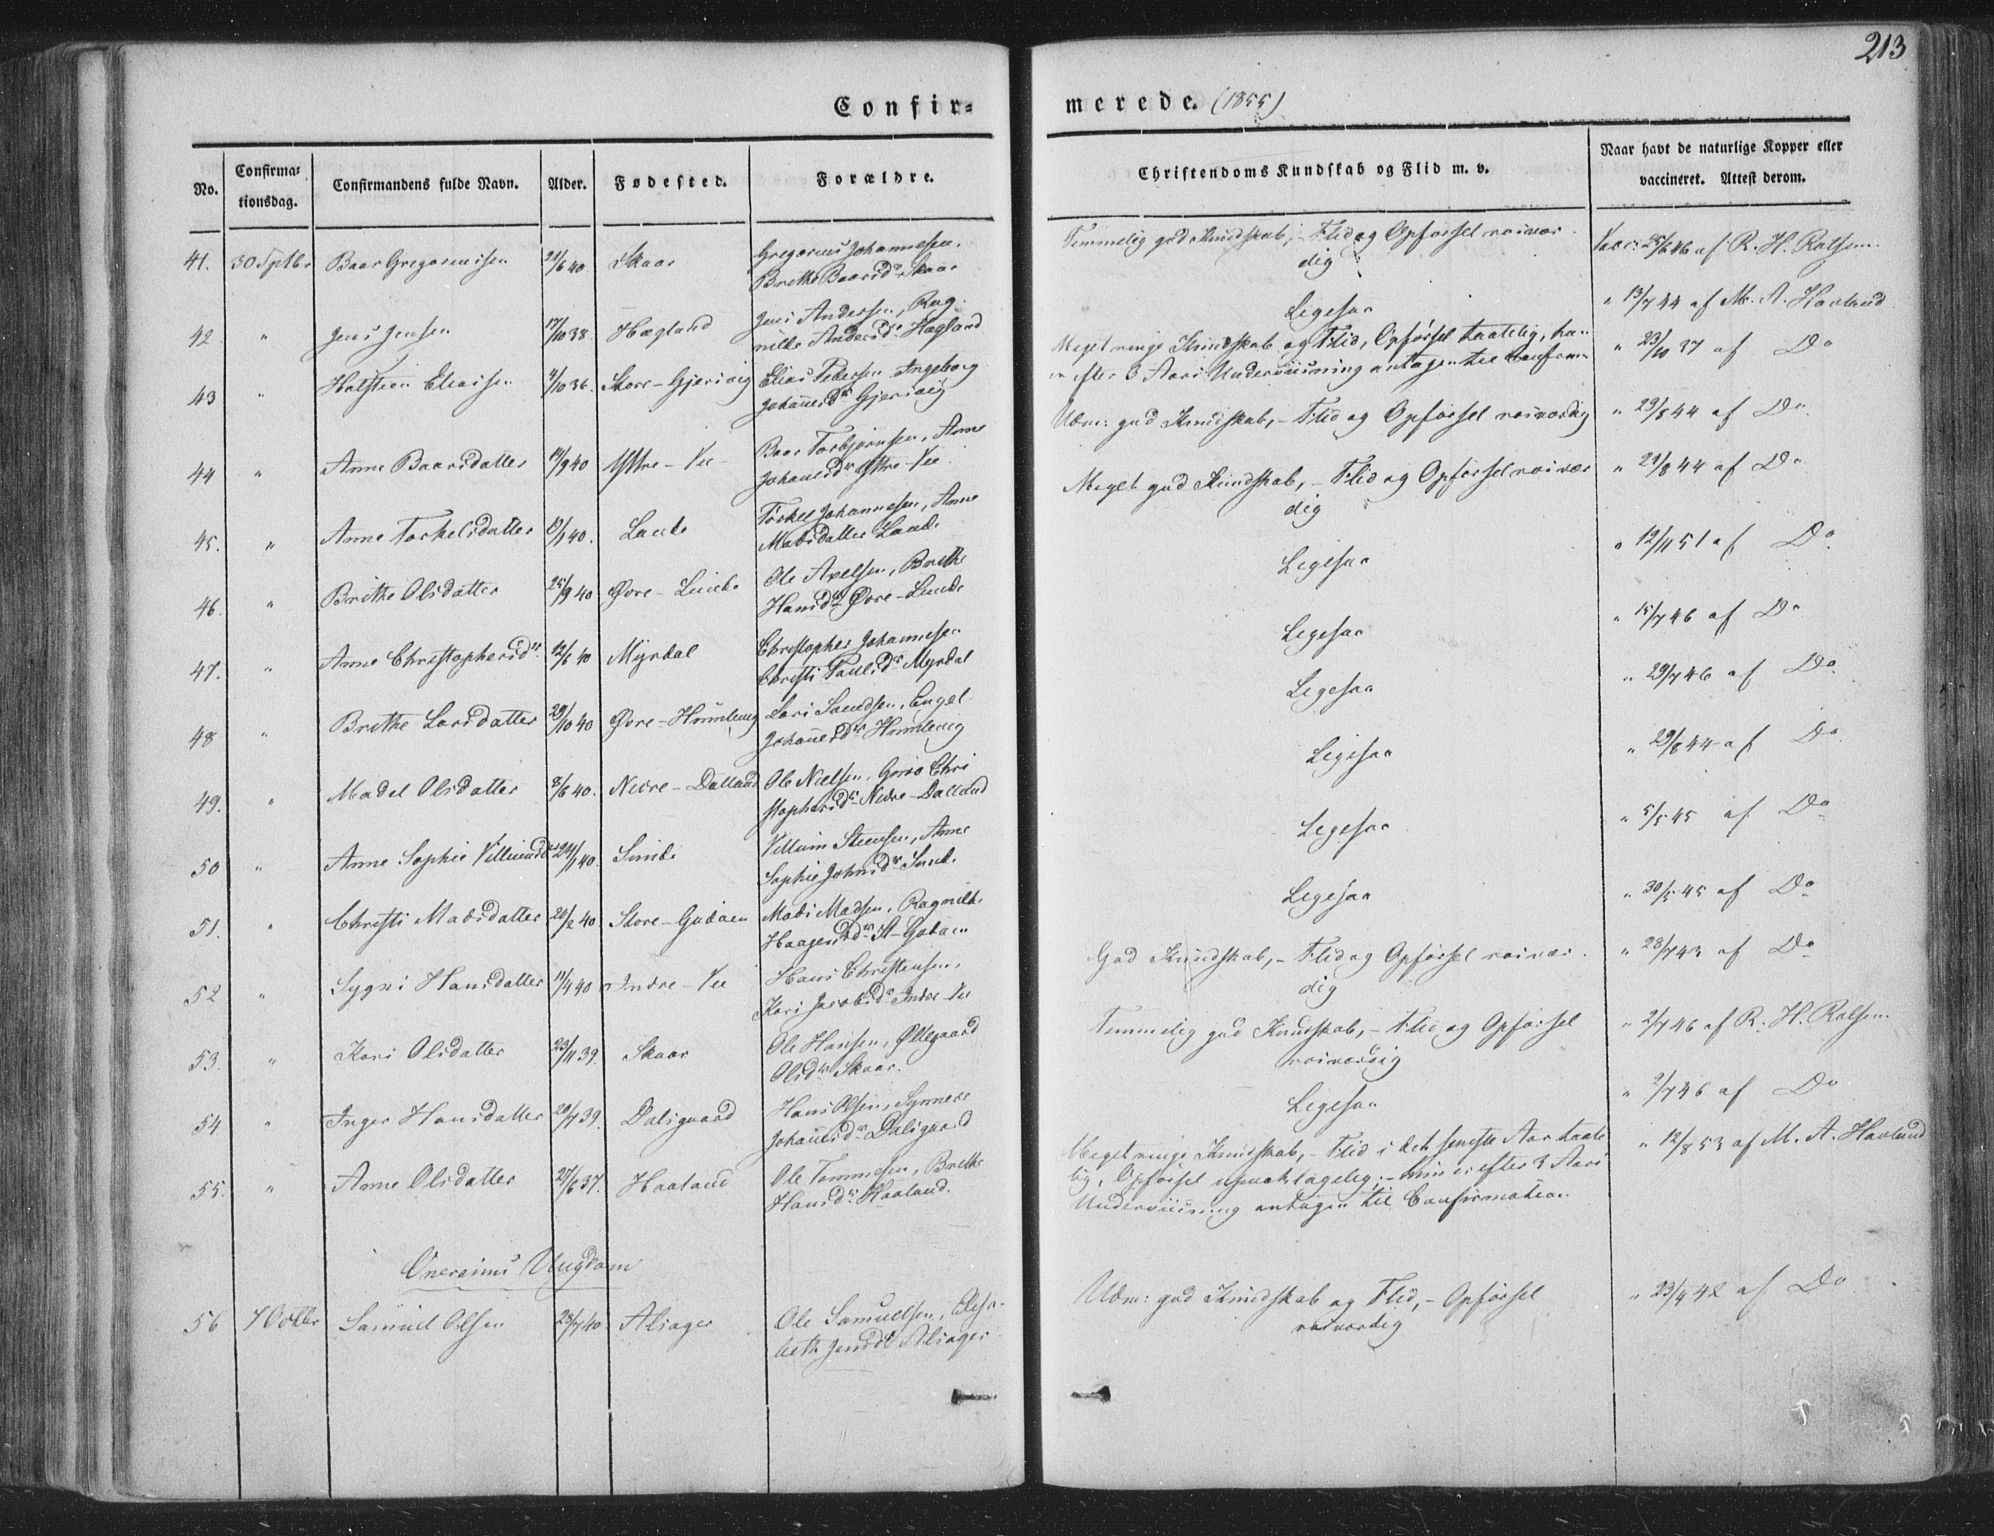 213
Confir=
merede. (1855)
No.
Confirma=
tionsdag.
Confirmandens fulde Navn.
Alder.
Fødested.
Forældre.
Christendoms Kundskab og Flid m. v.
Naar havt de naturlige Kopper eller
vaccineret. Attest derom.
41. 30 Sptbr Baar Gregoriussen 21/6 40 Skaar Gregorius Johannesen,
Brithe Baarsdr Skaar
Temmelig god Kundskab, - Flid og Opførsel roisvær
dig
Vac: 25/6 46 af R. H. Rolfsen
42 " Jens Jensen 17/10 38 Hægland Jens Andersen, Rag
nilde Andersdr Hægland
Ligesaa
" 13/7 44 af M. A. Havlund
43 " Halstein Eliassen 4/10 36. Store-Gjerivig Elias Pedersen, Ingeborg
Johannesdr Gjerivig
Meget ringe Kundskab og Flid, Opførsel taalelig, han
er efter 3 Aars Underviisning antagen til Confirm
" 23/10 37 af Do
44 " Anne Baarsdatter 19/9 40 Ystre-Vee Baar Torbjørnsen, Anne
Johannesdr Ystre-Vee
Udm: god Kundskab, - Flid og Opførsel roisværdig
" 29/8 44 af Do
45. " Anne Torkelsdatter 19/1 40. Lande Torkel Johannesen, Anne
Madsdatter Lande
Meget god Kundskab, - Flid og Opførsel roisvær
dig
" 29/8 44 af Do
46. " Brithe Olsdatter 25/9 40 Øvre-Lunde Ole Axelsen, Brithe
Hansdr Øvre-Lunde
Ligesaa
" 12/11 51 af Do
47. " Anne Christophersdr 12/6 40 Myrdal Christopher Johannesen
Christi Poulsdr Myrdal
Ligesaa
" 15/7 46 af Do
48 " Brithe Larsdatter 29/10 40 Øvre-Humleng Lars Svendsen, Engel
Johannesdr Humleng
Ligesaa
" 29/7 46 af Do.
49. " Madel Olsdatter 8/6 40. Nedre-Dalland Ole Nielsen, Guro Chri
stophersdr Nedre-Dalland
Ligesaa
" 29/8 44 af Do.
50 " Anne Sophie Villumsdr 24/1 40. Sunde Villum Steensen, Anne
Sophie Johnsdr Sunde
Ligesaa
" 5/5 45 af Do
51. " Christi Madsdatter 20/2 40 Store-Gudøen Mads Madsen, Ragnilde
Haagensdr St-Gudøen
Ligesaa
" 30/5 45 af Do
52 " Sygni Hansdatter 11/4 40 Indre-Vee Hans Christensen,
Kari Jacobsdr Indre-Vee
God Kundskab, - Flid og Opførsel roisvær
dig
" 28/7 43 af Do
53. " Kari Olsdatter 23/11 39. Skaar Ole Hansen, Øllegaard
Olsdr Skaar.
Temmelig god Kundskab, - Flid og Opførsel
roisværdig
" 2/7 46 af R. H. Rolfsen.
54 " Inger Hansdatter 20/7 39. Dalsgaard Hans Olsen, Synneve
Johannesdr Dalsgaard
Ligesaa
" 2/7 46 af Do
55. " Anne Olsdatter 27/6 37. Haaland Ole Tommesen, Brithe
Hansdr Haaland.
Meget ringe Kundskab, - Flid i det seneste Aar taale
lig, Opførsel upaaklagelig; - hun er efter 3 Aars
Underviisning antagen til Confirmation
" 12/8 53 af M. A. Havlund
Ungdom
56 7 Octbr Samuel Olsen 23/7 40 Alsager Ole Samuelsen, Elisa-
beth Jensdr Alsager
Udm: god Kundskab og Flid, - Opførsel
roisværdig
" 23/4 42 af Do